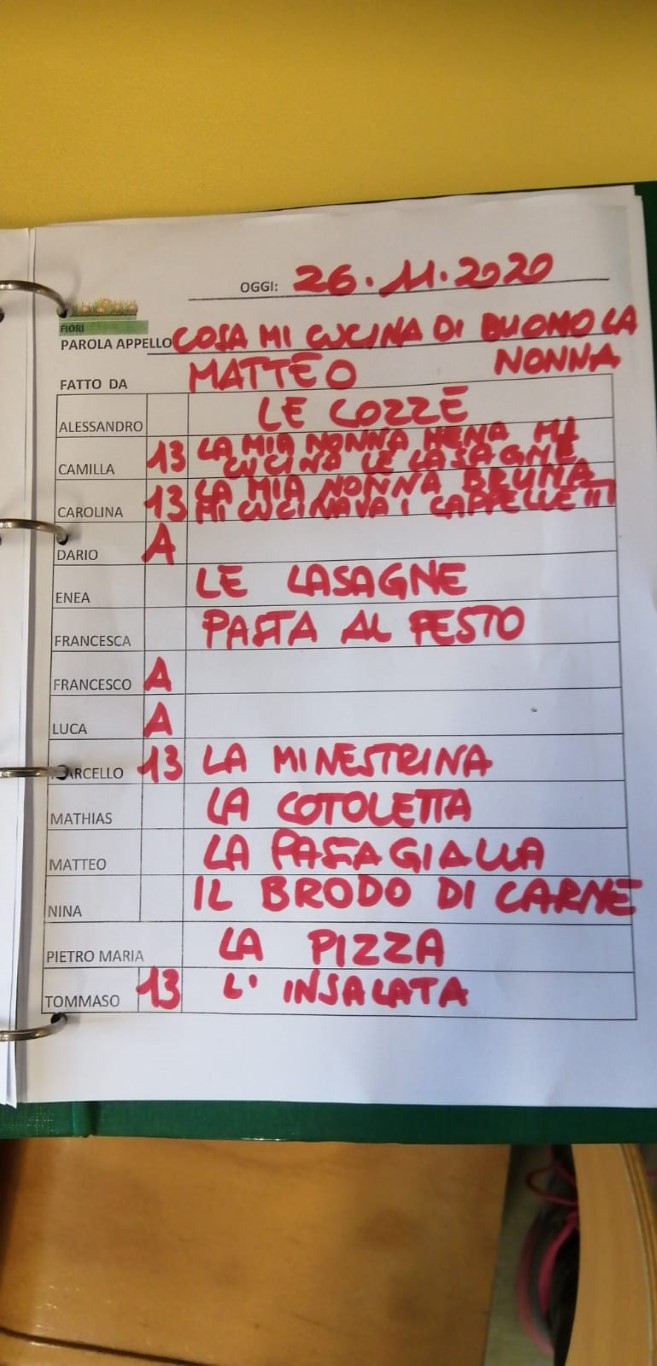 OGGI: 26.11.2020
FIORI
PAROLA APPELLO COSA MI CUCINA DI BUONO LA
NONNA
FATTO DA MATTEO
ALESSANDRO LE COZZE
CAMILLA 13 LA MIA NONNA NENA MI
CUCINA LE LASAGNE
CAROLINA 13 LA MIA NONNA BRUNA
MI CUCINAVA I CAPPELLETTI
DARIO A
ENEA LE LASAGNE
FRANCESCA PASTA AL PESTO
FRANCESCO A
LUCA A
MARCELLO 13 LA MINESTRINA
MATHIAS LA COTOLETTA
MATTEO LA PASTA GIALLA
NINA IL BRODO DI CARNE
PIETRO MARIA LA PIZZA
TOMMASO 13 L'INSALATA